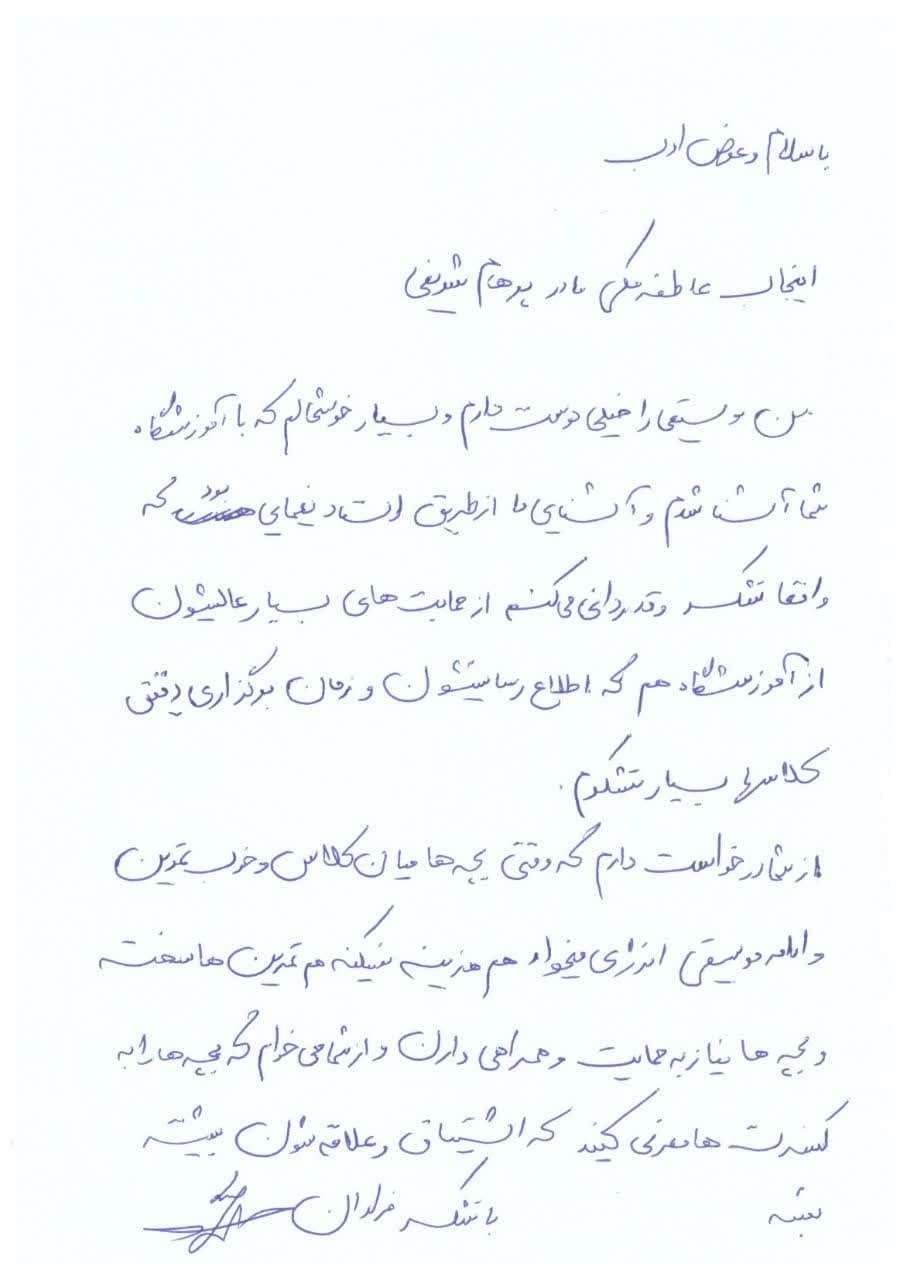 با سلام و عرض ادب
اینجانب عاطفه ملکی مادر پرهام شریفی
من موسیقی را خیلی دوست دارم و بسیار خوشحالم که با آموزشگاه
شما آشنا شدم و آشنایی ما از طریق استاد یغمایی بود که
واقعا تشکر و قدردانی می‌کنم از حمایت های بسیار عالیشون
از آموزشگاه هم که اطلاع رسانیشون و زمان برگزاری دقیق
کلاسها بسیار متشکرم.
از شما درخواست دارم که وقتی بچه ها میان کلاس و خوب تمرین
و ادامه موسیقی انرژی میخواد هم هزینه سنگینه هم تمرین ها سخته
و بچه ها نیاز به حمایت و همراهی دارن و از شما می خوام که بچه ها را به
کنسرت ها معرفی کنید که اشتیاق و علاقه شون بیشتر
بشه با تشکر فراوان